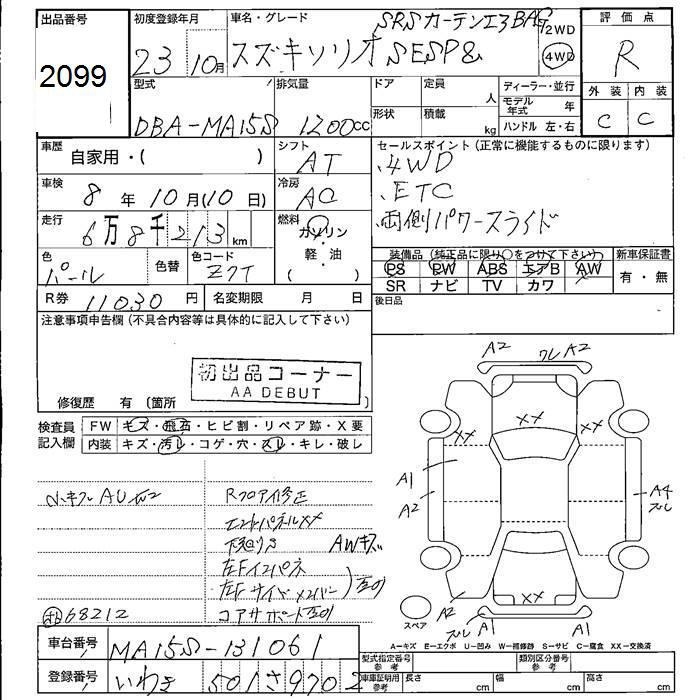 出品番号
2099
初度登録年月
23 10月
車名・グレード
SRSカーテンエアBAG
スズキソリオ SESP&
2WD
4WD
評価点
R
外装 内装
C C
型式
DBA-MA15S
排気量
1200cc
ドア
形状
定員
人
積載
kg
ディーラー・並行
モデル年式 年
ハンドル 左・右
車歴
自家用・( )
シフト
AT
車検
8年10月(10日)
冷房
AC
走行
6万8千213km
燃料
ガソリン・軽・油
( )
色
パール
色替
色コード
Z7T
R券 11030円
名変期限 月 日
セールスポイント(正常に機能するものに限ります)
.4WD
.ETC
.両側パワースライド
装備品(純正品に限り○をつけて下さい)
PS PW ABS エアB AW
SR ナビ TV カワ
新車保証書
有・無
後日品
注意事項申告欄(不具合内容等は具体的に記入して下さい)
初出品コーナー
AA DEBUT
修復歴 有(箇所 )
検査員記入欄
FW キズ・飛石・ヒビ割・リペア跡・X要
内装 キズ・汚レ・コゲ・穴・スレ・キレ・破レ
Rフロア修正
エンドパネルXX
下廻りS
AWキズ
左Fインパネ
左Fサイドメンバー
コアサポート
68212
A2
A2
XX
XX
XX
A1
A2
A4
スレ
XX
A2
スレ
A1
A1
スペア
A―キズ E―エクボ U―凹み W―補修跡 S―サビ C―腐食 XX―交換済
車台番号
MA15S-131061
登録番号
いわき 501 さ 9702
型式指定番号 参考
類別区分番号 参考
車庫証明用 参考
長さ cm
幅 cm
高さ cm